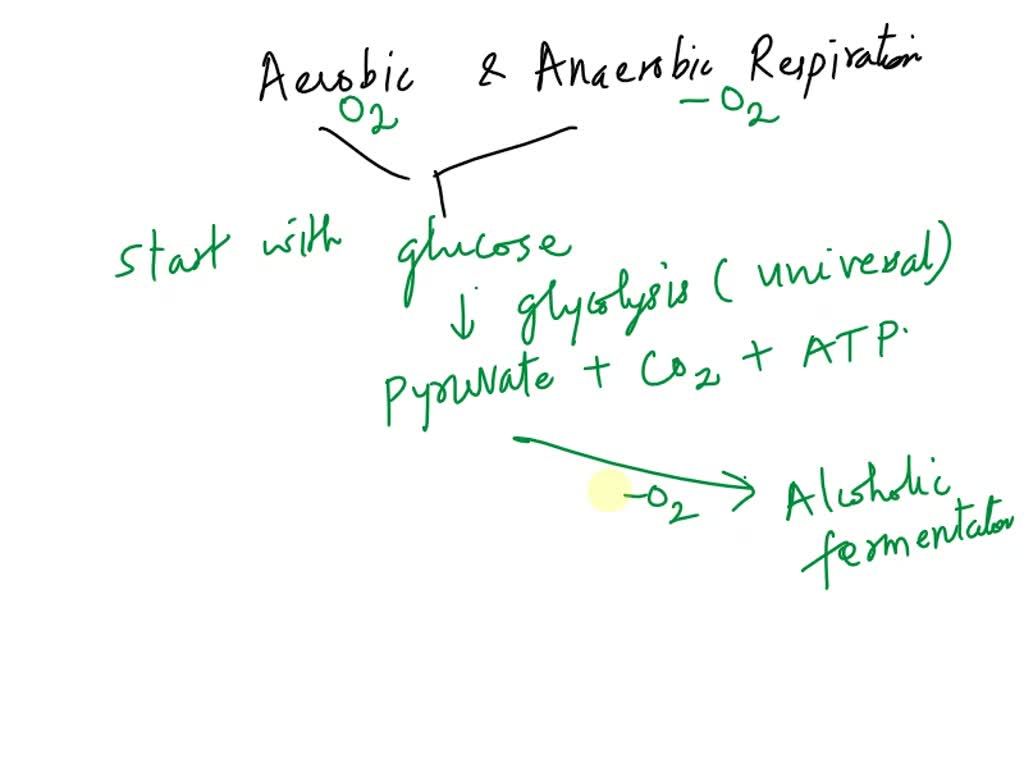 Aerobic & Anaerobic Respiration
O2 -O2
start with glucose
↓ glycolysis (universal)
Pyruvate + CO2 + ATP.
-O2 → Alcoholic
fermentation